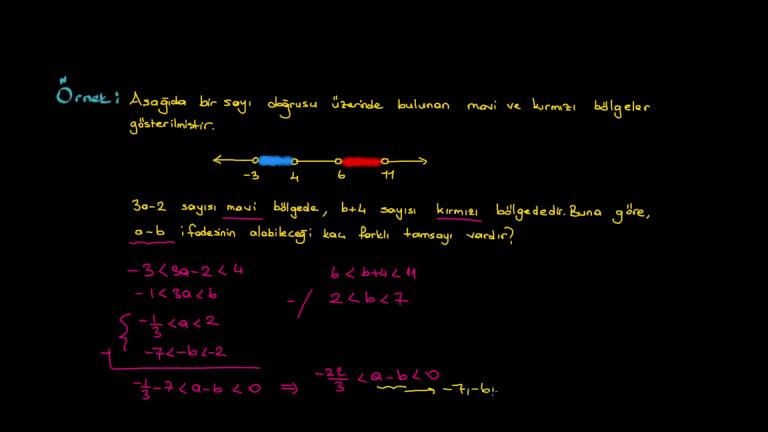 Örnek: Aşağıda bir sayı doğrusu üzerinde bulunan mavi ve kırmızı bölgeler
gösterilmiştir.
-3 4 6 11
3a-2 sayısı mavi bölgede, b+4 sayısı kırmızı bölgededir. Buna göre,
a-b ifadesinin alabileceği kaç farklı tamsayı vardır?
-3<3a-2<4 6<b+4<11
-1<3a<6 -/ 2<b<7
-1/3<a<2
-7<-b<-2
+
-1/3-7<a-b<0 ⇒ -22/3<a-b<0 → -7,-6,